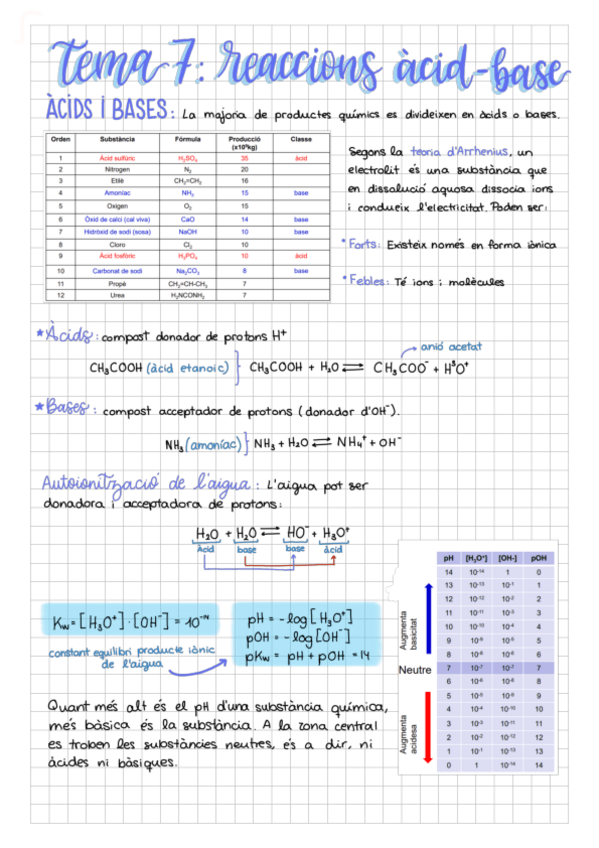 Tema 7: reaccions àcid-base
ÀCIDS i BASES: La majoria de productes químics es divideixen en àcids o bases.
Orden Substància Fórmula Producció (x10⁹kg) Classe
1 Àcid sulfúric H₂SO₄ 35 àcid
2 Nitrogen N₂ 20
3 Etilè CH₂=CH₂ 16
4 Amoníac NH₃ 15 base
5 Oxigen O₂ 15
6 Òxid de calci (cal viva) CaO 14 base
7 Hidròxid de sodi (sosa) NaOH 10 base
8 Cloro Cl₂ 10
9 Àcid fosfòric H₃PO₄ 10 àcid
10 Carbonat de sodi Na₂CO₃ 8 base
11 Propè CH₂=CH-CH₃ 7
12 Urea H₂NCONH₂ 7
Segons la teoria d'Arrhenius, un
electrolit és una substància que
en dissolució aquosa dissocia ions
i condueix l'electricitat. Poden ser:
* Forts: Existeix només en forma iònica
* Febles: Té ions i molècules
* Àcids: compost donador de protons H⁺
anió acetat
CH₃COOH (àcid etanoic) } CH₃COOH + H₂O ⇌ CH₃COO⁻ + H³O⁺
* Bases: compost acceptador de protons (donador d'OH⁻).
NH₃ (amoníac) } NH₃ + H₂O ⇌ NH₄⁺ + OH⁻
Autoionització de l'aigua: L'aigua pot ser
donadora i acceptadora de protons:
H₂O + H₂O ⇌ HO⁻ + H₃O⁺
àcid base base àcid
Kw = [H₃O⁺] · [OH⁻] = 10⁻¹⁴
constant equilibri producte iònic
de l'aigua
pH = -log [H₃O⁺]
pOH = -log [OH⁻]
pKw = pH + pOH = 14
pH [H₃O⁺] [OH-] pOH
14 10⁻¹⁴ 1 0
13 10⁻¹³ 10⁻¹ 1
12 10⁻¹² 10⁻² 2
11 10⁻¹¹ 10⁻³ 3
10 10⁻¹⁰ 10⁻⁴ 4
9 10⁻⁹ 10⁻⁵ 5
8 10⁻⁸ 10⁻⁶ 6
7 10⁻⁷ 10⁻⁷ 7
6 10⁻⁶ 10⁻⁸ 8
5 10⁻⁵ 10⁻⁹ 9
4 10⁻⁴ 10⁻¹⁰ 10
3 10⁻³ 10⁻¹¹ 11
2 10⁻² 10⁻¹² 12
1 10⁻¹ 10⁻¹³ 13
0 1 10⁻¹⁴ 14
Augmenta basicitat
Neutre
Augmenta acidesa
Quant més alt és el pH d'una substància química,
més bàsica és la substància. A la zona central
es troben les substàncies neutres, és a dir, ni
àcides ni bàsiques.